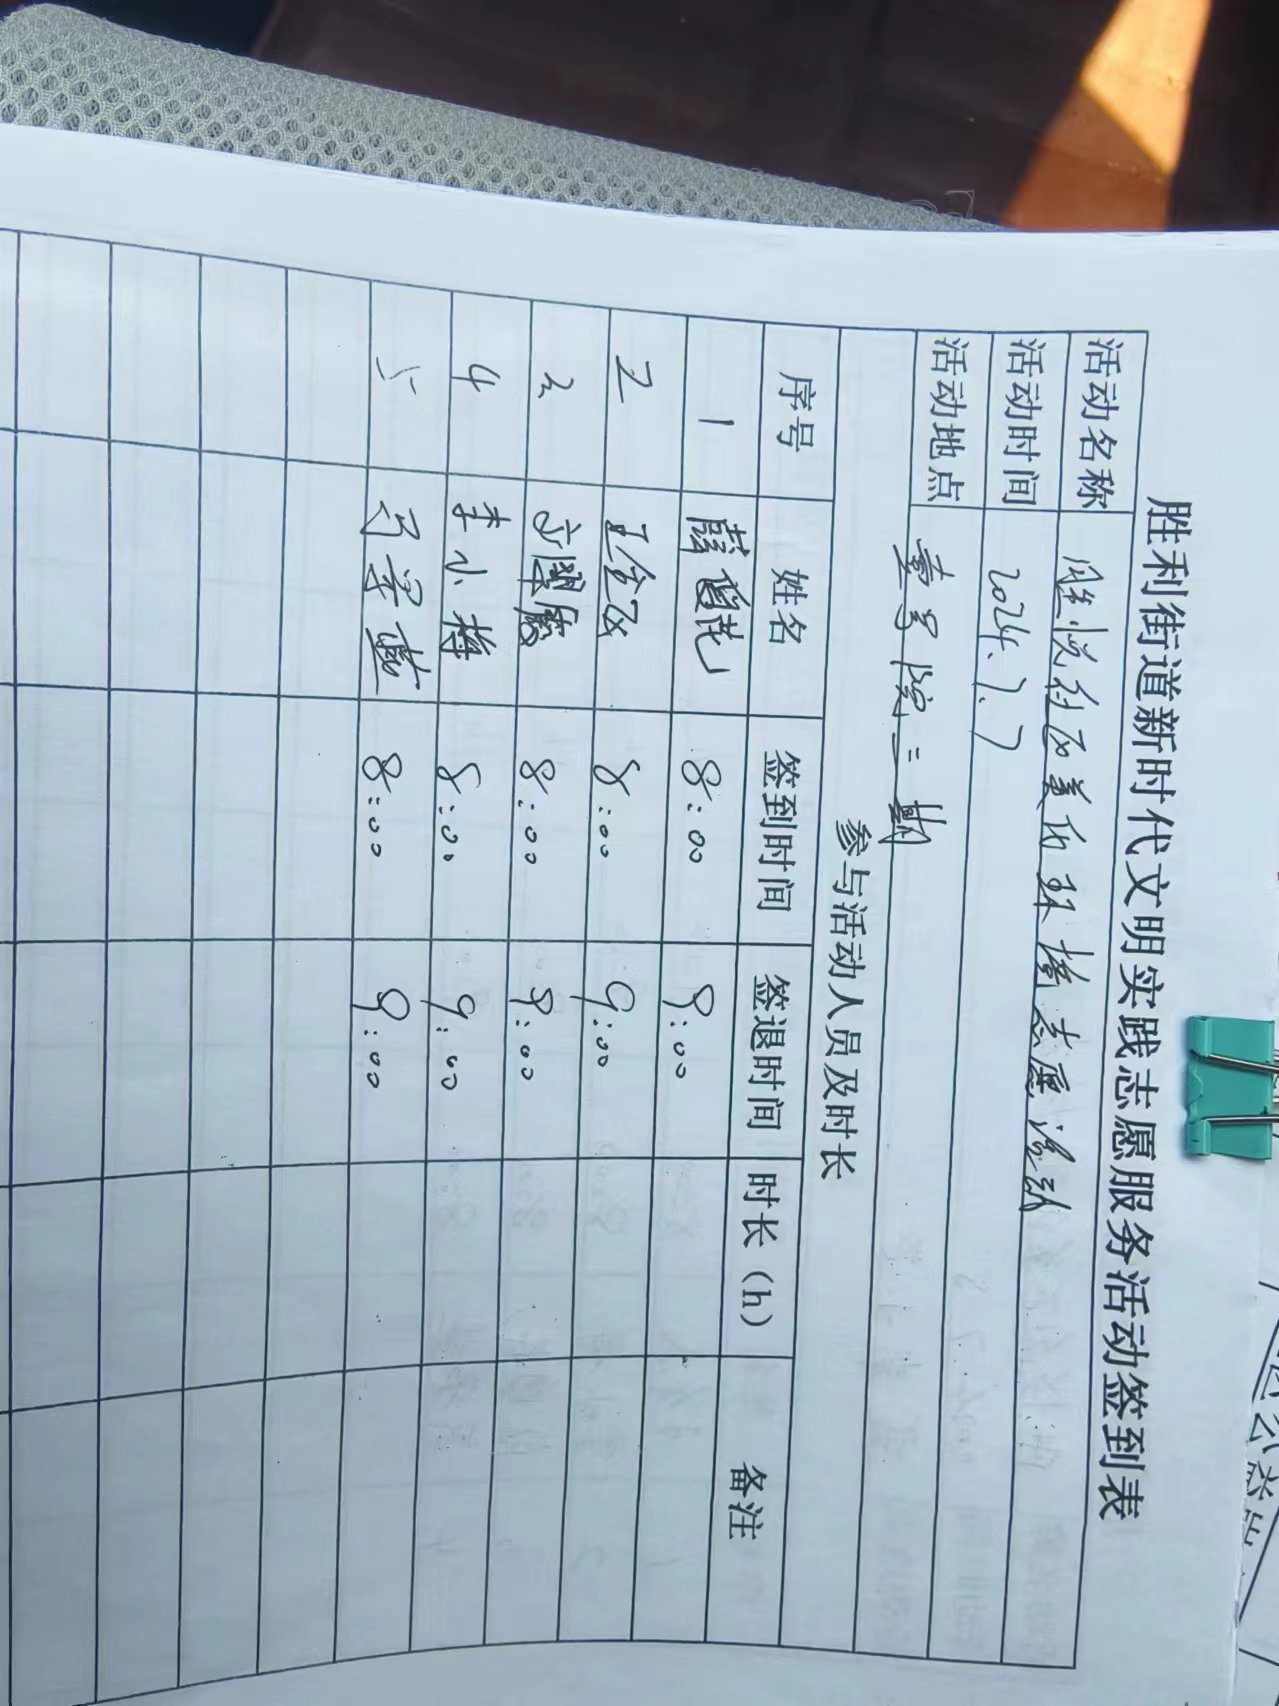 胜利街道新时代文明实践志愿服务活动签到表
活动名称 胜悦社区美化环境志愿活动
活动时间 2024.7.7
活动地点 书院二期
参与活动人员及时长
序号 姓名 签到时间 签退时间 时长（h） 备注
1 8:00 9:00
2 王金 8:00 9:00
3 8:00 9:00
4 李小梅 8:00 9:00
5 8:00 9:00
公益